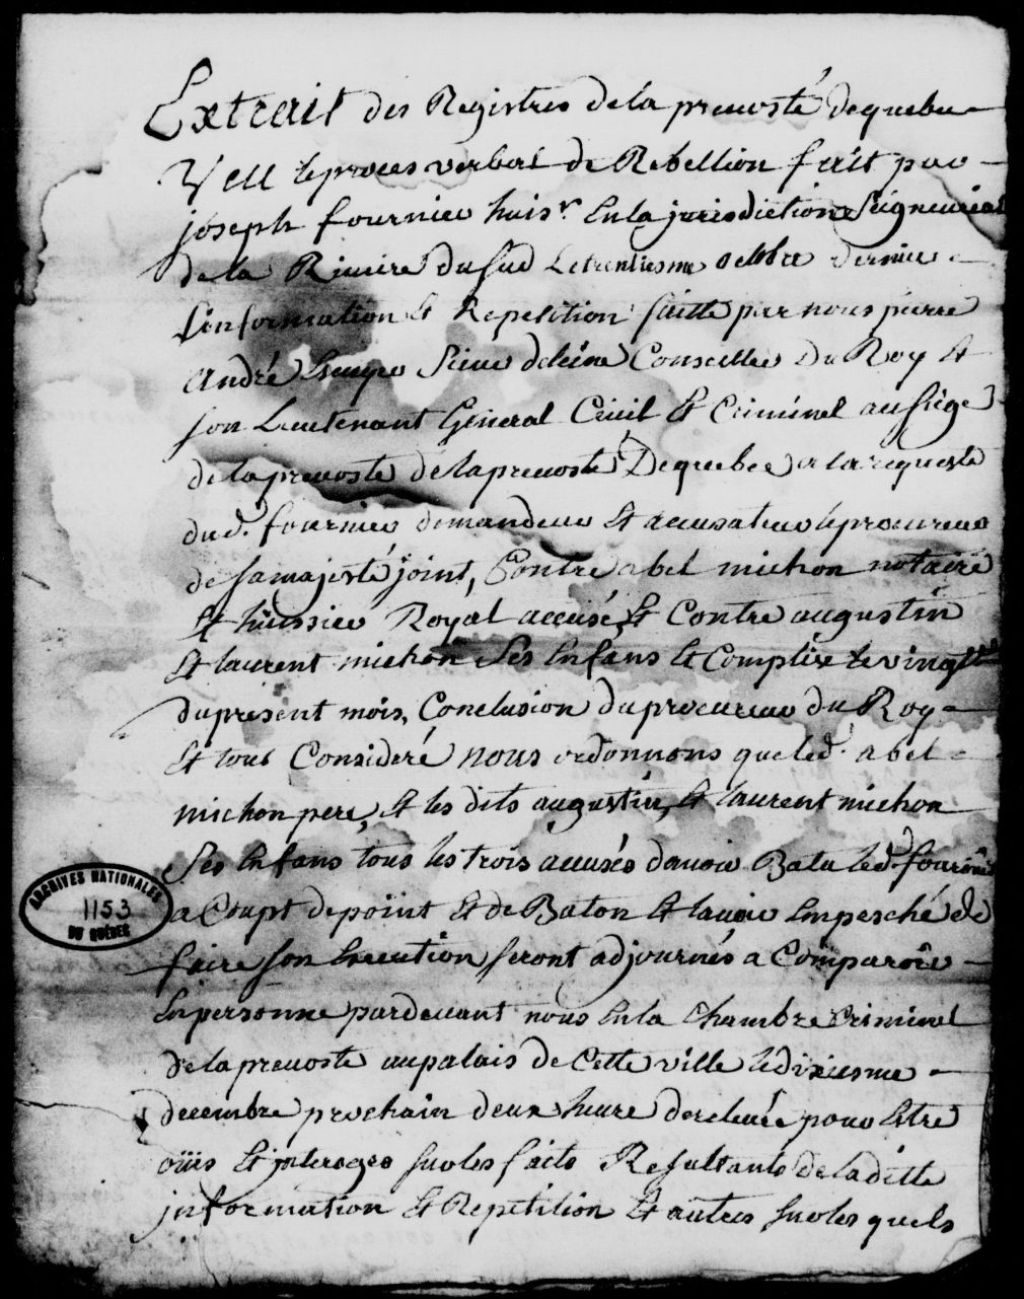 Extrait des Registres de la prevosté de quebec
Veu le proces verbal de Rebellion fait par
joseph fournier huisr. En la jurisdiction Seigneurial
de la Riviere du Sud Le trentiesme octobre dernier
L'information Et Repetition faitte par nous pierre
André Ecuyer Sieur deleine Conseiller Du Roy Et
son Lieutenant General Civil Et Criminel au siege
de la prevosté de la prevosté De quebec a la requeste
dud. fournier demandeur Et accusateur le procureur
de sa majesté joint, Contre abel michon notaire
Et huissier Royal accusé, Et Contre augustin
Et laurent michon Ses Enfans Et Complice le vingt
du present mois, Conclusion du procureur du Roy
Et tout Consideré nous ordonnons que led. abel
michon pere, Et les dits augustin, Et laurent michon
Ses Enfans tous les trois accusés d'avoir Batu led. fournier
a Coupt de point Et de Baton Et l'avoir Empesché de
faire son Execution seront adjournés a Comparoir
En personne pardevant nous En la Chambre Criminel
de la prevosté au palais de Cette ville le dixiesme
decembre prochain deux heure de relevée pour Estre
ouis Et interoges sur les faits Resultants de la ditte
information Et Repetition Et autres sur les quels
ARCHIVES NATIONALES
1153
DU QUÉBEC